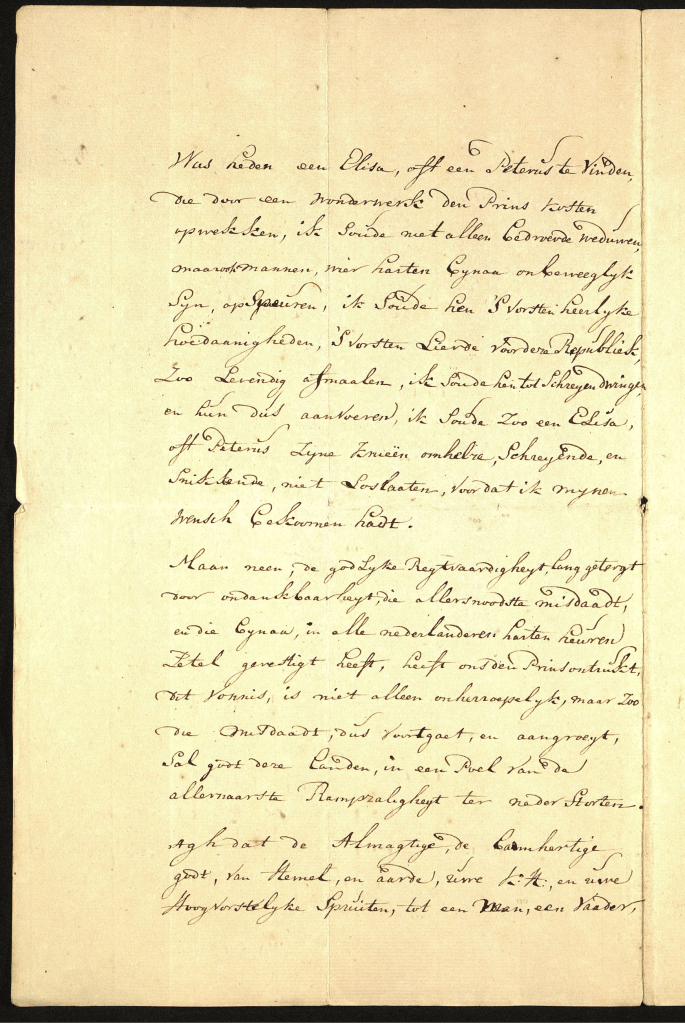 Was heden een Elisa, oft een Peterus te Vinden,
die door een wonderwerk den Prins kosten
opwekken, ik Soude niet alleen bedroevde weduwen,
maar ook mannen, wier harten bynaa onbeweeglyk
Syn, opSpeuren, ik Soude hen 'S Vorsten heerlyke
hoedaanigheden, 'S Vorsten Lierde voor deze Republiek,
Zoo Levendig afmaalen, ik Soude hen tot Schreyen dwingen,
en hun dus aanvoeren, ik Soude Zoo een Elisa,
oft Peterus Zyne knieën omhelze, Schreyende, en
Snikkende, niet Loslaaten, voor dat ik mynen
wensch bekoomen hadt.
Maar neen, de godlyke Regtvaardigheyt, lang getorgt
door ondankbaarheyt, die allersnoodste misdaadt,
en die bynaa, in alle nederlanderen harten heuren
Zetel gevestigt heeft, heeft ons den Prins ontrukt,
dit vonnis, is niet alleen onherroepelyk, maar Zoo
die misdaadt, dus voortgaet, en aangroeyt,
Sal godt deze landen, in een Poel van de
allernaarste Rampzaligheyt ter neder Storten.
Agh dat de Almagtige, de barmhertige
godt, van Hemel, en aarde, uwe K: H:, en uwe
Hoogvorstelyke Spruiten, tot een Man, een Vaader,